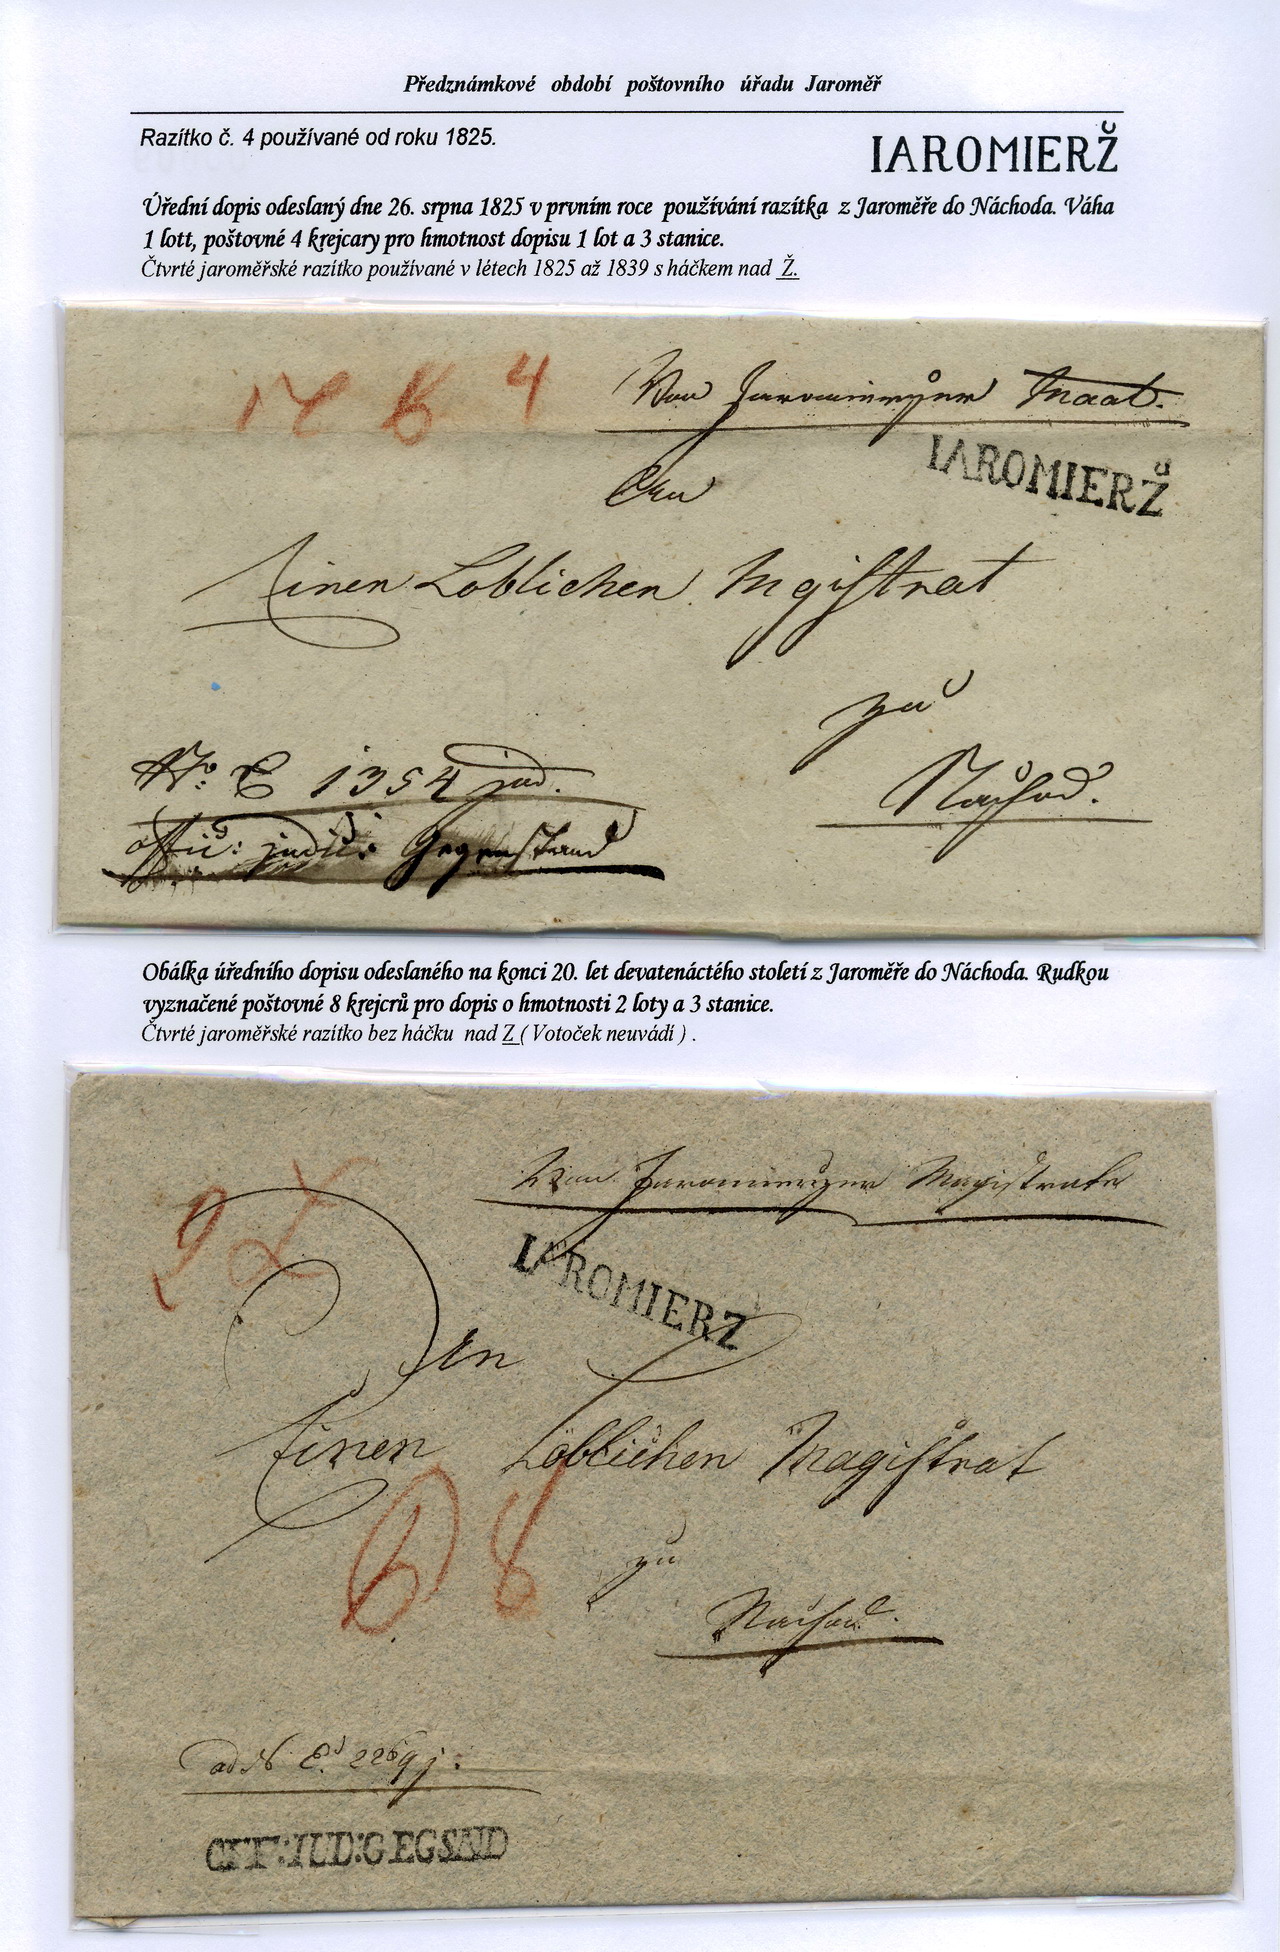 Předznámkové období poštovního úřadu Jaroměř
Razítko č. 4 používané od roku 1825.
IAROMIERŽ
Úřední dopis odeslaný dne 26. srpna 1825 v prvním roce používání razítka z Jaroměře do Náchoda. Váha
1 lott, poštovné 4 krejcary pro hmotnost dopisu 1 lot a 3 stanice.
Čtvrté jaroměřské razítko používané v létech 1825 až 1839 s háčkem nad Ž.
4
Von Jaromierzer Maat.
IAROMIERŽ
An
Einen Loblichen Mgistrat
zu
Nachod.
No: E 1354 jud.
Offic: judic: Gegenstand
Obálka úředního dopisu odeslaného na konci 20. let devatenáctého století z Jaroměře do Náchoda. Rudkou
vyznačené poštovné 8 krejcrů pro dopis o hmotnosti 2 loty a 3 stanice.
Čtvrté jaroměřské razítko bez háčku nad Z ( Votoček neuvádí ) .
Von Jaromierzer Magistrate
IAROMIERZ
An
Einen Löblichen Magistrat
8
zu
Nachod.
ad N. E. 2269 j:
OFF:IUD:GEGSND